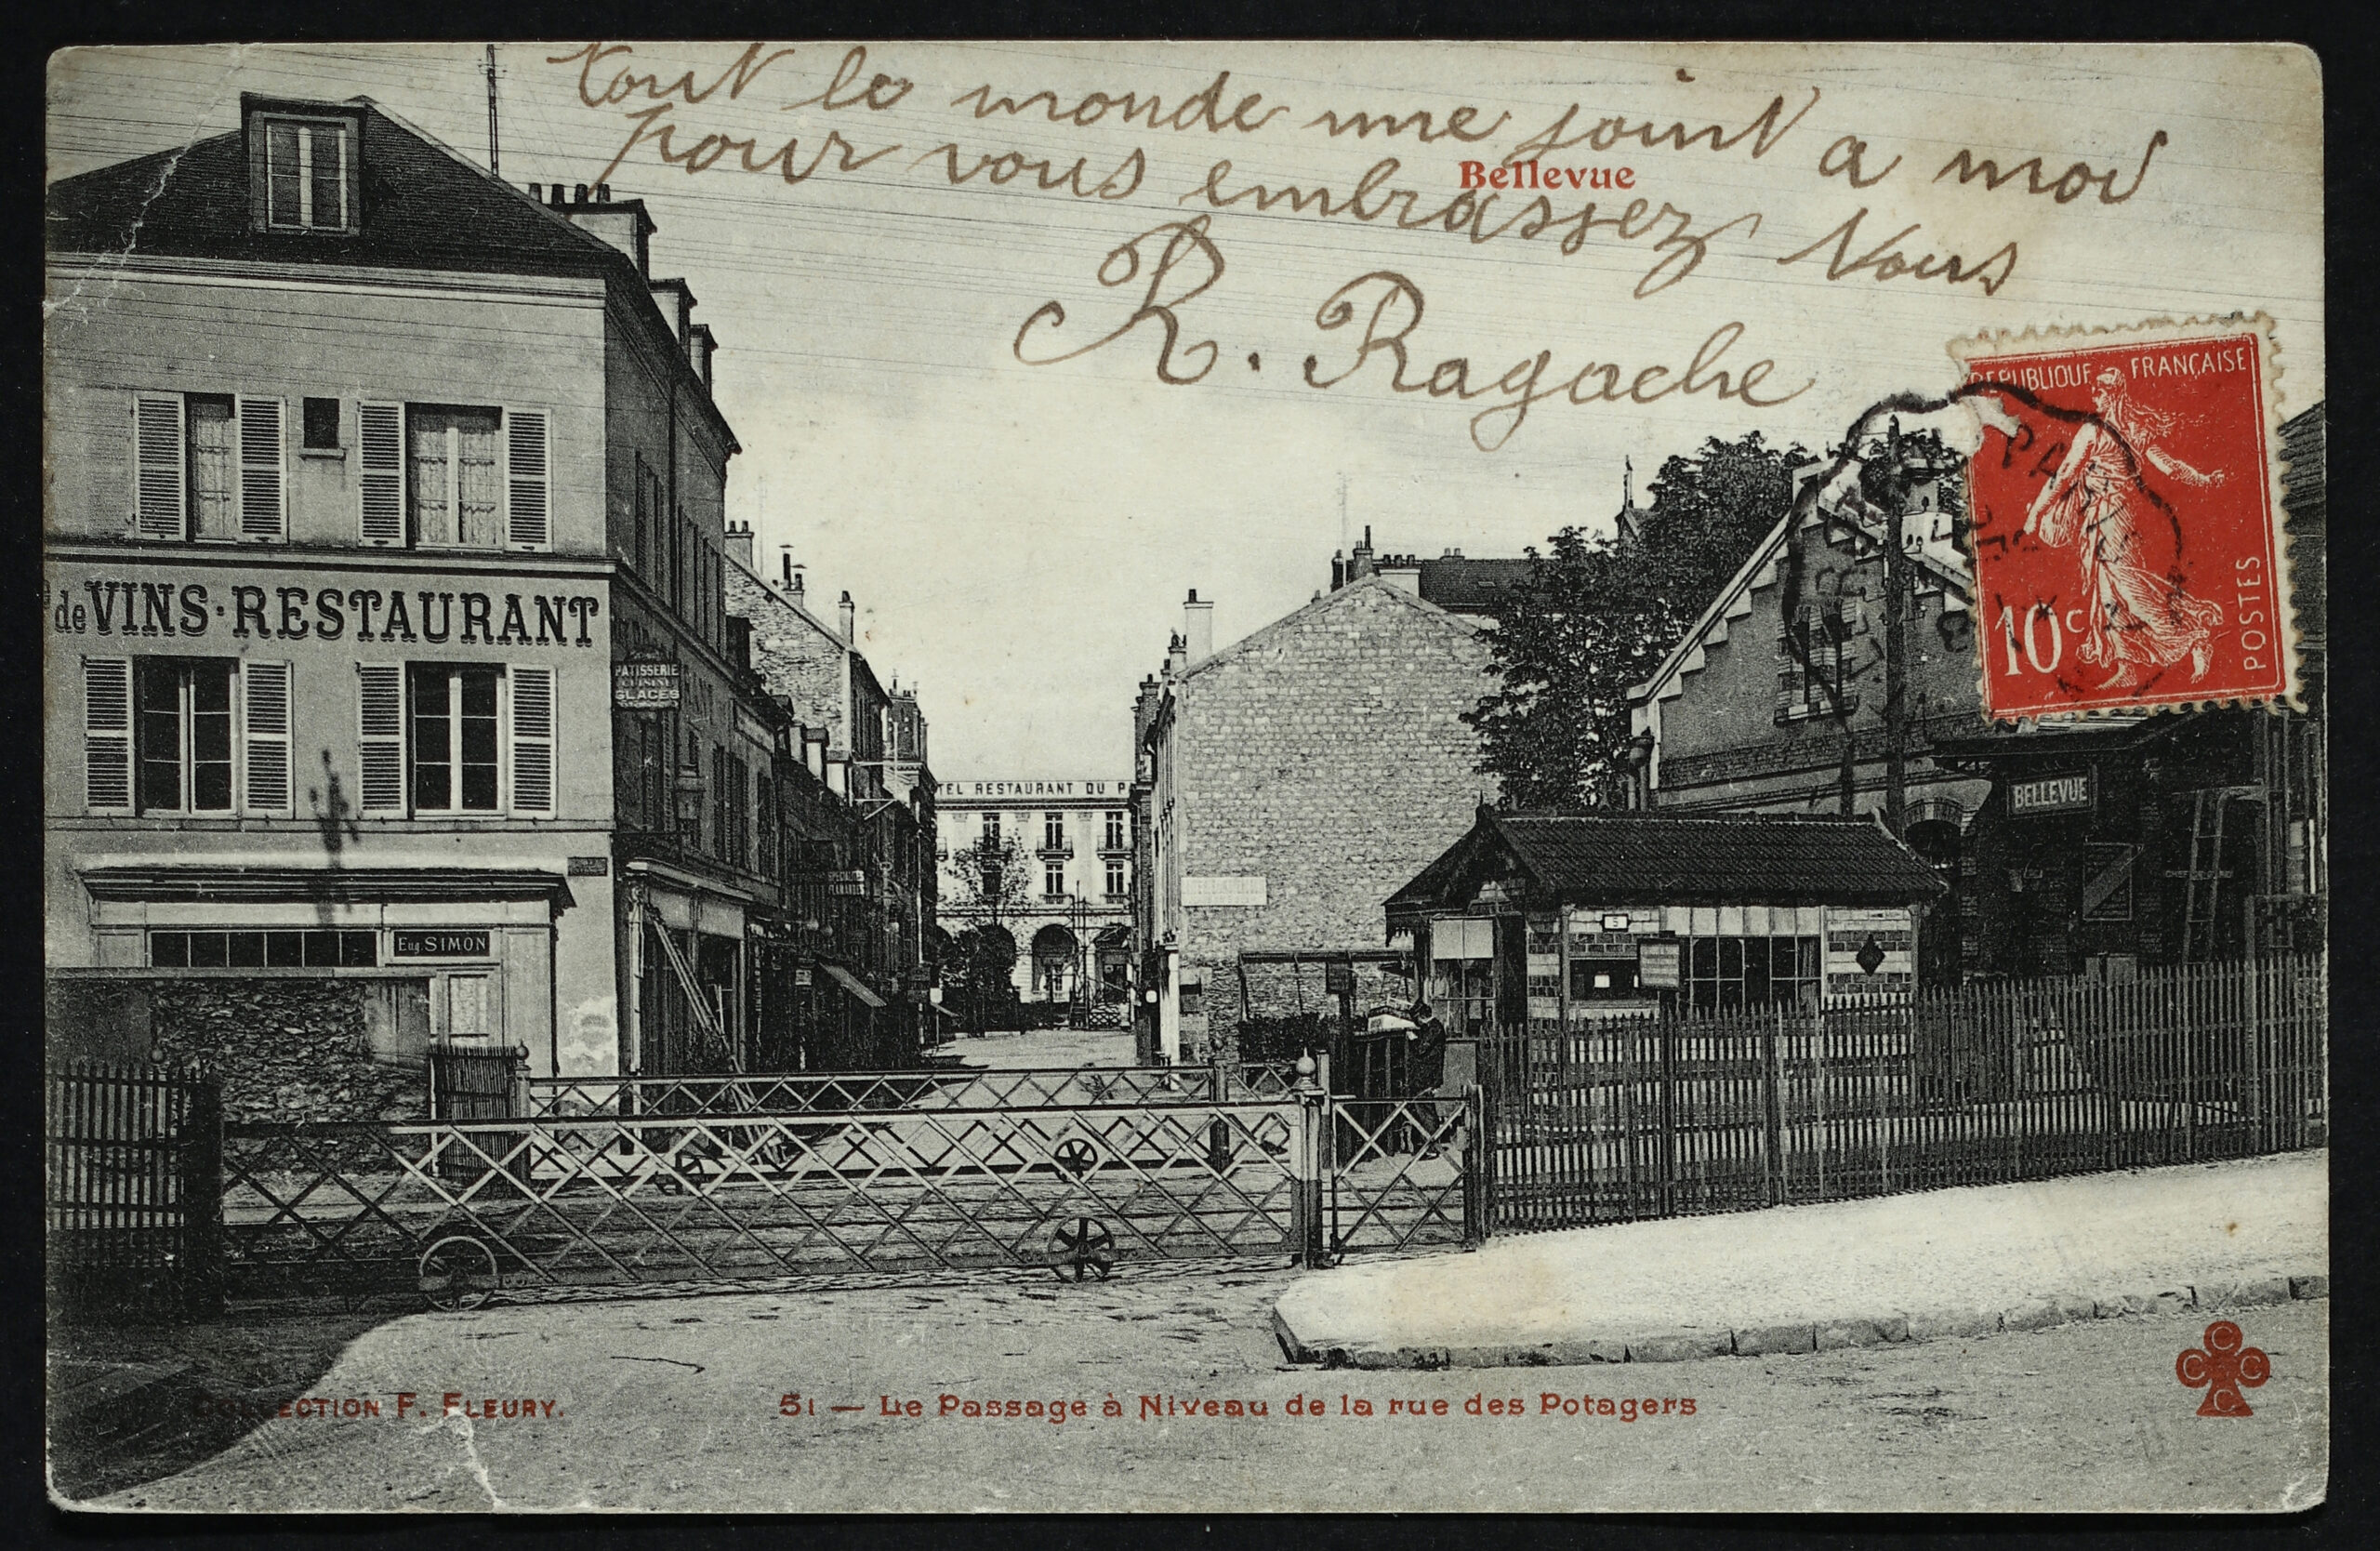 tout le monde une joint a moi
pour vous embrassez Vous
R. Ragache
Bellevue
REPUBLIQUE FRANÇAISE
10c
POSTES
PARIS
de VINS·RESTAURANT
PATISSERIE
CUISINE
GLACES
TEL RESTAURANT DU P
BELLEVUE
SPECIALITES
FLAMANDES
Eug. SIMON
5
COLLECTION F. FLEURY.
51 — Le Passage à Niveau de la rue des Potagers
C
C C C
C